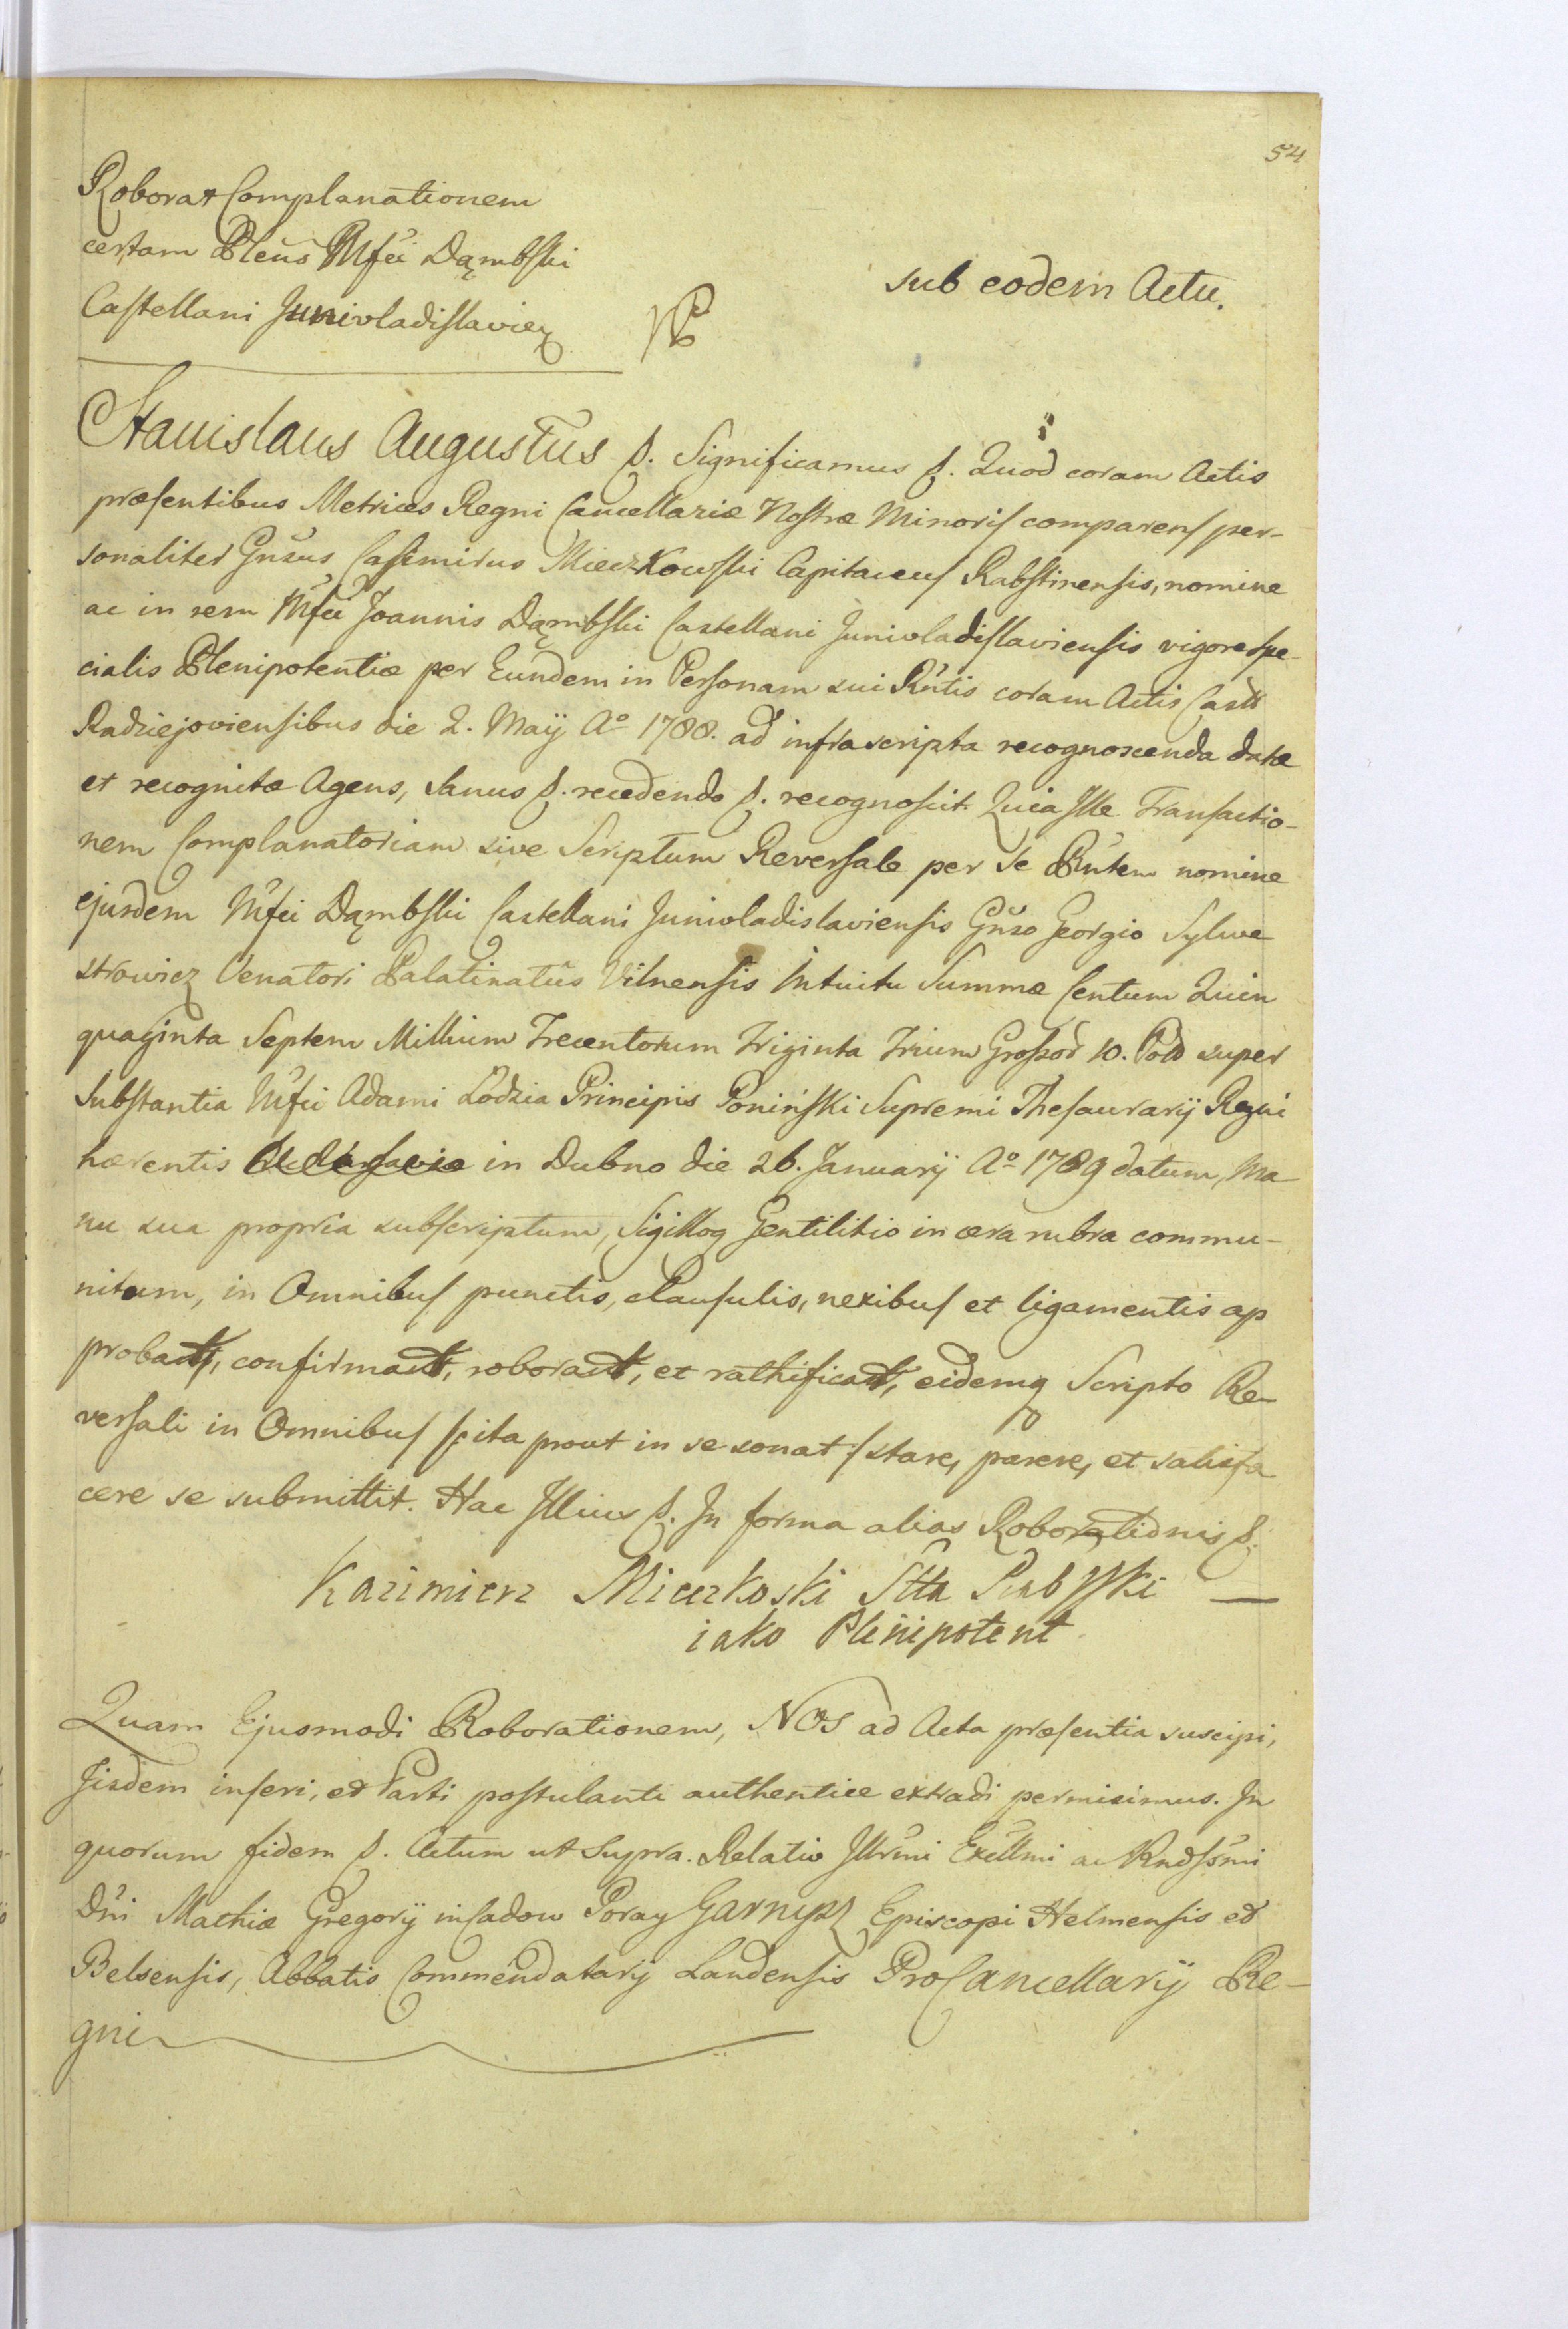 54
Roborat Complanationem
certam Plēus Mfci Dąmbski
Castellani Junivladislavien
sub eodem Actu.
Stanislaus Augustus S. Significamus S. Quod coram Actis
præsentibus Metrices Regni Cancellariæ Nostræ Minoris comparens per-
sonaliter Gnsus Casimirus Mieczkowski Capitaneus Rabstinensis, nomine
ac in rem Mfci Joannis Dąmbski Castellani Junivladislaviensis vigore spe-
cialis Plenipotentiæ per Eundem in Personam sui Rntis coram Actis Castr
Radziejoviensibus die 2. Maij Aº 1788. ad infrascripta recognoscenda datæ
et recognitæ Agens, Sanus S. recedendo S. recognoscit. Quia Ille Transactio-
nem Complanatoriam sive Scriptum Reversale per se Rntem nomine
ejusdem Mfci Dąmbski Castellani Junivladislaviensis Gnso Georgio Sylwe
strowicz Venatori Palatinatûs Vilnensis Intuitu Summæ Centum Quin
quaginta Septem Millium Trecentorum Triginta Trium Grossor 10. Pold super
Substantia Mfci Adami Łodzia Principis Poniński Supremi Thesaurarij Regni
hærentis in Dubno die 26. Januarij Aº 1789 datum, Ma-
nu sua propria subscriptum, Sigilloq Gentilitio in cera rubra commu-
nitum, in Omnibus punctis, clausulis, nexibus et ligamentis ap
probat, confirmat, roborat, et rathificat, eidemq Scripto Re-
versali in Omnibus /:ita prout in se sonat:/ stare, parere, et satisfa
cere se submittit. Hac Illius S. In forma alias Roborationis S.
Kazimierz Mieczkoski Stta Rabsztski
iako Plenipotent
Quam Ejusmodi Roborationem, NOS ad Acta præsentia suscipi,
Iisdem inseri, et Parti postulanti authentice extradi permisimus. In
quorum fidem S. Actum ut supra. Relatio Illrmi Excllmi ac Rndssmi
Dni Mathiæ Gregorij insadow Poray Garnysz Episcopi Helmensis et
Belsensis, Abbatis Commendatarij Landensis ProCancellarij Re-
gni